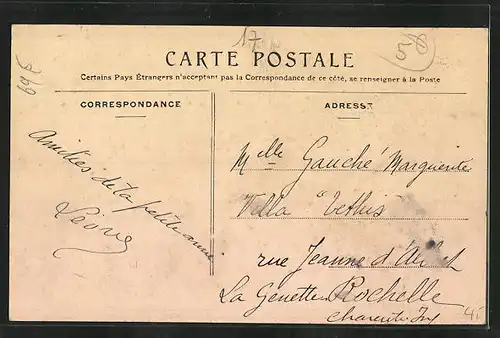 17
58
698
CARTE POSTALE
Certains Pays Étrangers n'acceptant pas la Correspondance de ce côté, se renseigner à la Poste
CORRESPONDANCE
ADRESSE
Amitiés de ta petite amie
Léone
Melle Gauché Marguerite
Villa "Vethis"
rue Jeanne d'
La Genette Rochelle
Charente Inf
45